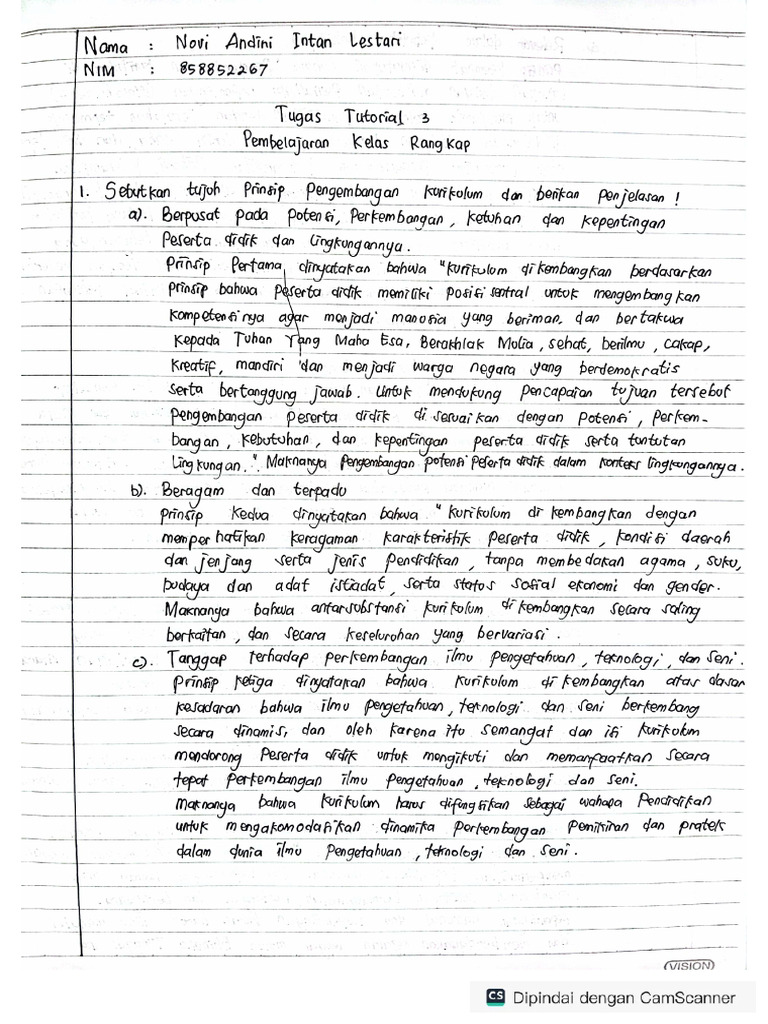 Nama : Novi Andini Intan Lestari
NIM : 858852267
Tugas Tutorial 3
Pembelajaran Kelas Rangkap
1. Sebutkan tujuh Prinsip Pengembangan Kurikulum dan berikan penjelasan !
a). Berpusat pada Potensi, Perkembangan, ketuhan dan kepentingan
Peserta didik dan Lingkungannya.
Prinsip Pertama dinyatakan bahwa "kurikulum di kembangkan berdasarkan
prinsip bahwa Peserta didik memiliki posisi sentral untuk mengembangkan
kompetensinya agar menjadi manusia yang beriman dan bertakwa
kepada Tuhan Yang Maha Esa, Berakhlak Mulia, sehat, berilmu, cakap,
kreatif, mandiri dan menjadi warga negara yang berdemokratis
serta bertanggung jawab. Untuk mendukung pencapaian tujuan tersebut
pengembangan peserta didik di sesuaikan dengan potensi, perkem-
bangan, kebutuhan, dan kepentingan peserta didik serta tuntutan
lingkungan.". Maknanya pengembangan potensi peserta didik dalam konteks lingkungannya.
b). Beragam dan terpadu
prinsip kedua dinyatakan bahwa "kurikulum di kembangkan dengan
memperhatikan keragaman karakteristik peserta didik, kondisi daerah
dan jenjang serta jenis pendidikan, tanpa membedakan agama, suku,
budaya dan adat istiadat, serta status sosial ekonomi dan gender.
Maknanya bahwa antarsubstansi kurikulum di kembangkan secara saling
berkaitan, dan secara keseluruhan yang bervariasi.
c). Tanggap terhadap perkembangan ilmu pengetahuan, teknologi, dan seni.
prinsip ketiga dinyatakan bahwa kurikulum di kembangkan atas dasar
kesadaran bahwa ilmu pengetahuan, teknologi dan seni berkembang
secara dinamis, dan oleh karena itu semangat dan isi kurikulum
mendorong Peserta didik untuk mengikuti dan memanfaatkan secara
tepat perkembangan ilmu pengetahuan, teknologi dan seni.
Maknanya bahwa kurikulum harus difungsikan sebagai wahana Pendidikan
untuk mengakomodasikan dinamika perkembangan pemikiran dan pratek
dalam dunia ilmu pengetahuan, teknologi dan seni.
VISION
CS Dipindai dengan CamScanner